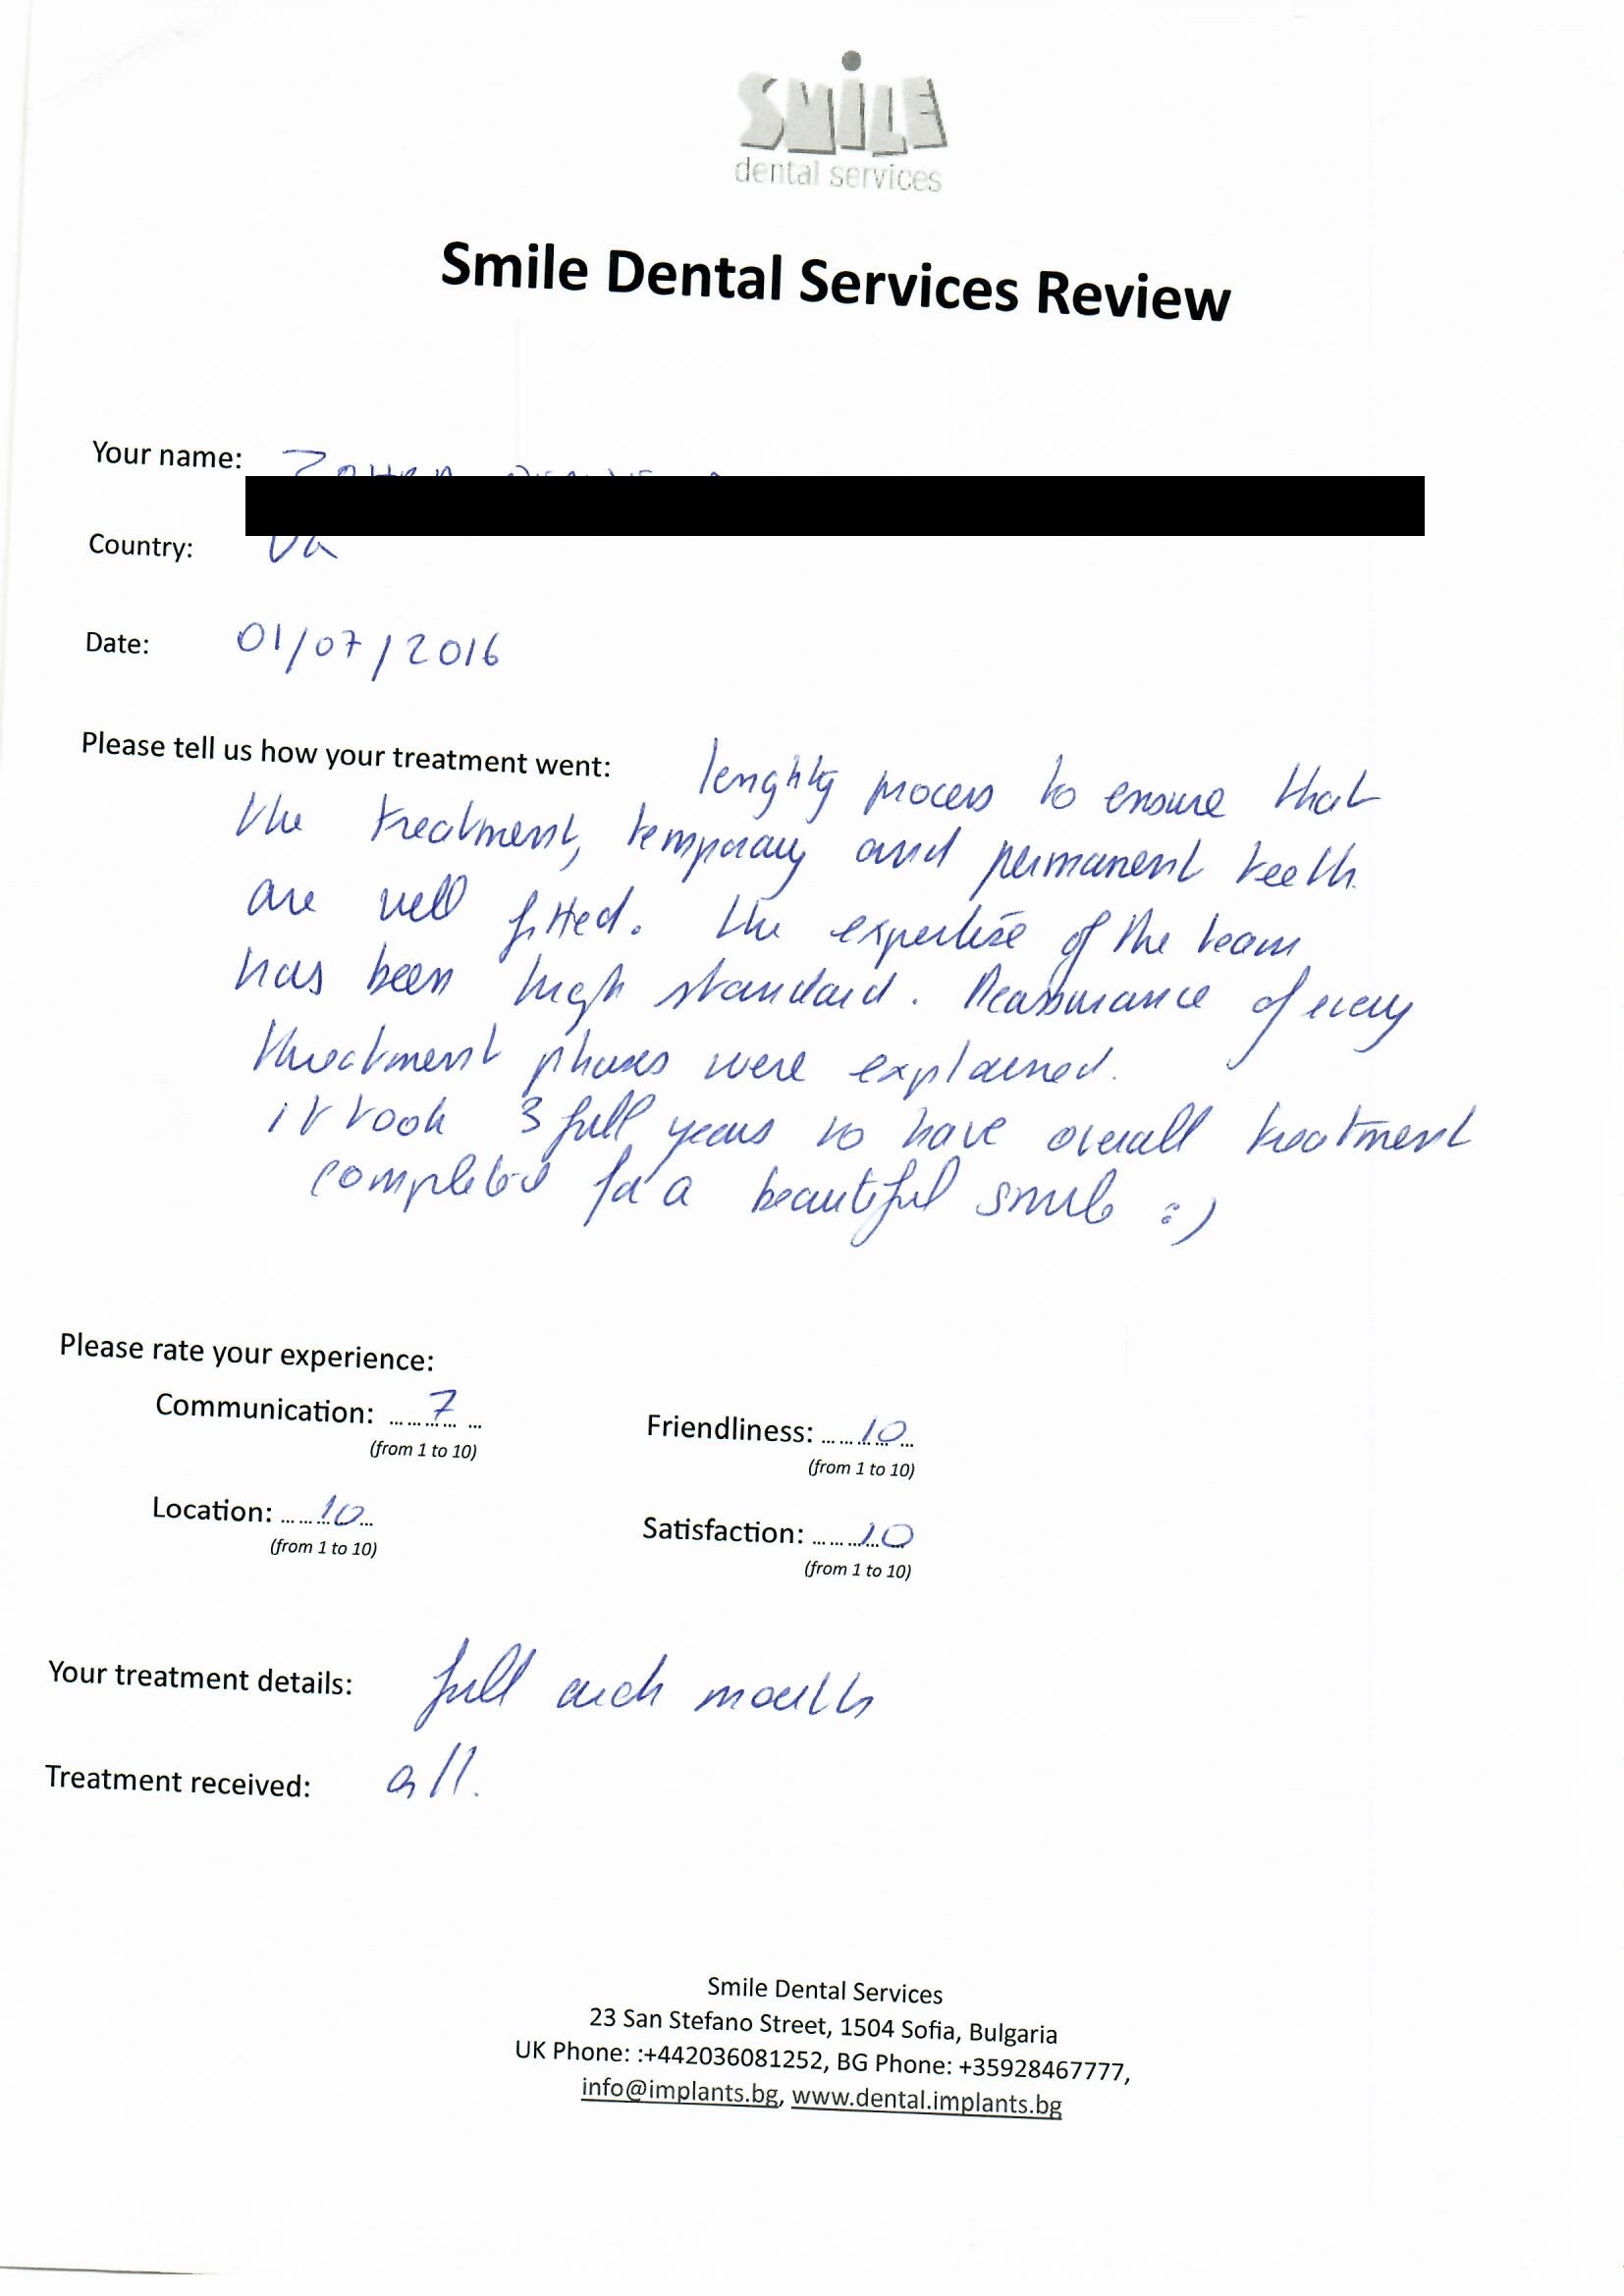 SMiLE
dental services
Smile Dental Services Review
Your name:
Country: UK
Date: 01/07/2016
Please tell us how your treatment went: lenghty process to ensure that
the treatment, temporary and permanent teeth
are well fitted. the expertise of the team
has been high standard. Reassurance of every
threatment phases were explained.
it took 3 full years to have overall treatment
completed for a beautiful smile :)
Please rate your experience:
Communication: 7 Friendliness: 10
(from 1 to 10) (from 1 to 10)
Location: 10 Satisfaction: 10
(from 1 to 10) (from 1 to 10)
Your treatment details: full arch mouth
Treatment received: all.
Smile Dental Services
23 San Stefano Street, 1504 Sofia, Bulgaria
UK Phone: :+442036081252, BG Phone: +35928467777,
info@implants.bg, www.dental.implants.bg